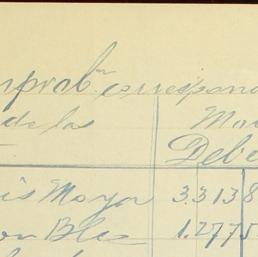 nprobn correspond
de las Ma
Debe
is Mayor 33138
on Blas 1.2775